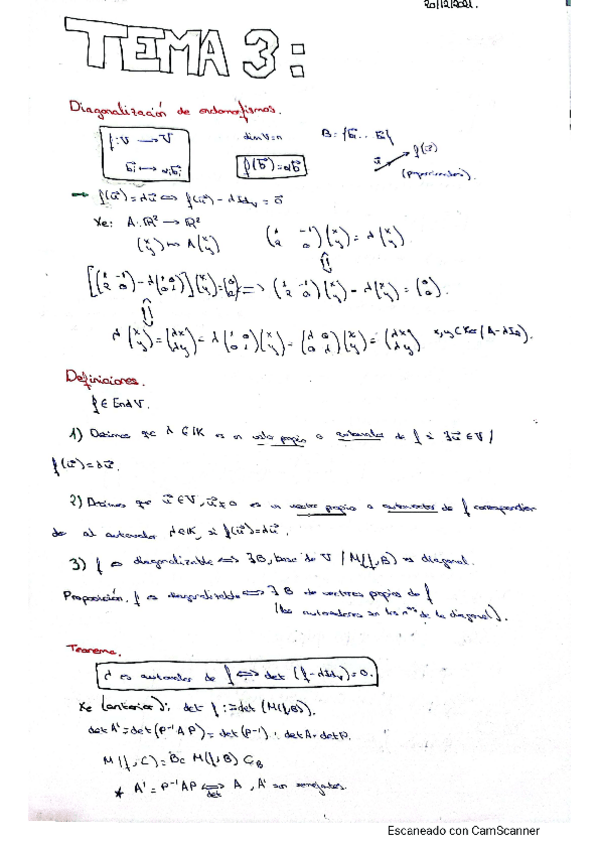 20/12/2021.
TEMA 3:
Diagonalización de endomorfismos.
f: V → V    dim V = n    B: {b⃗... b⃗}    u⃗ f(u⃗)
b⃗i ↔ αi b⃗i    f(b⃗) = αb⃗    (proporcional).
→ f(u⃗) = λu⃗ ⇔ f(u⃗) - λIdv = 0⃗
Xe: A: ℝ² → ℝ²
(x y) ↦ A(x y)    (1 -1 2 0)(x y) = λ(x y)
[(1 -1 2 0) - λ(1 0 0 1)](x y) = (0 0) ⇔ (1 -1 2 0)(x y) - λ(x y) = (0 0).
λ(x y) = (λx λy) = λ(1 0 0 1)(x y) = (λ 0 0 λ)(x y) = (λx λy)    x,y ∈ Ker(A-λId).
Definiciones.
f ∈ End V.
1) Decimos que λ ∈ K es un valor propio o autovalor de f si ∃u⃗ ∈ V /
f(u⃗) = λu⃗.
2) Decimos que u⃗ ∈ V, u⃗ ≠ 0 es un vector propio o autovector de f correspondien
de al autovalor λ ∈ K, si f(u⃗) = λu⃗.
3) f es diagonalizable ⇔ ∃B, base de V / M(f,B) es diagonal.
Proposición. f es diagonalizable ⇔ ∃ B de vectores propios de f
(los autovalores son los nºs de la diagonal).
Teorema.
λ es autovalor de f ⇔ det (f-λIdv) = 0.
Xe (anterior): det f := det (M(f,B)).
det A' = det(P⁻¹AP) = det(P⁻¹) · det A · det P.
M(f,C) = Bc M(f,B) CB
* A' = P⁻¹AP ⇔ det A, A' son semejantes.
Escaneado con CamScanner